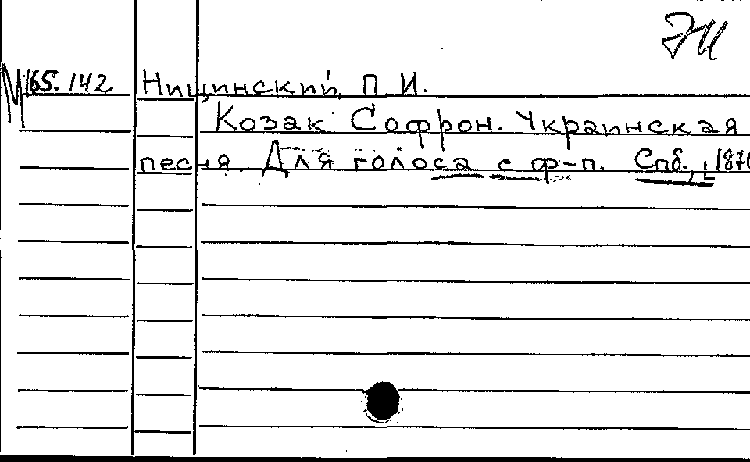 М 165.142 Нищинский, П. И.
Козак Софрон. Украинская
песня. Для голоса с ф-п. Спб.,